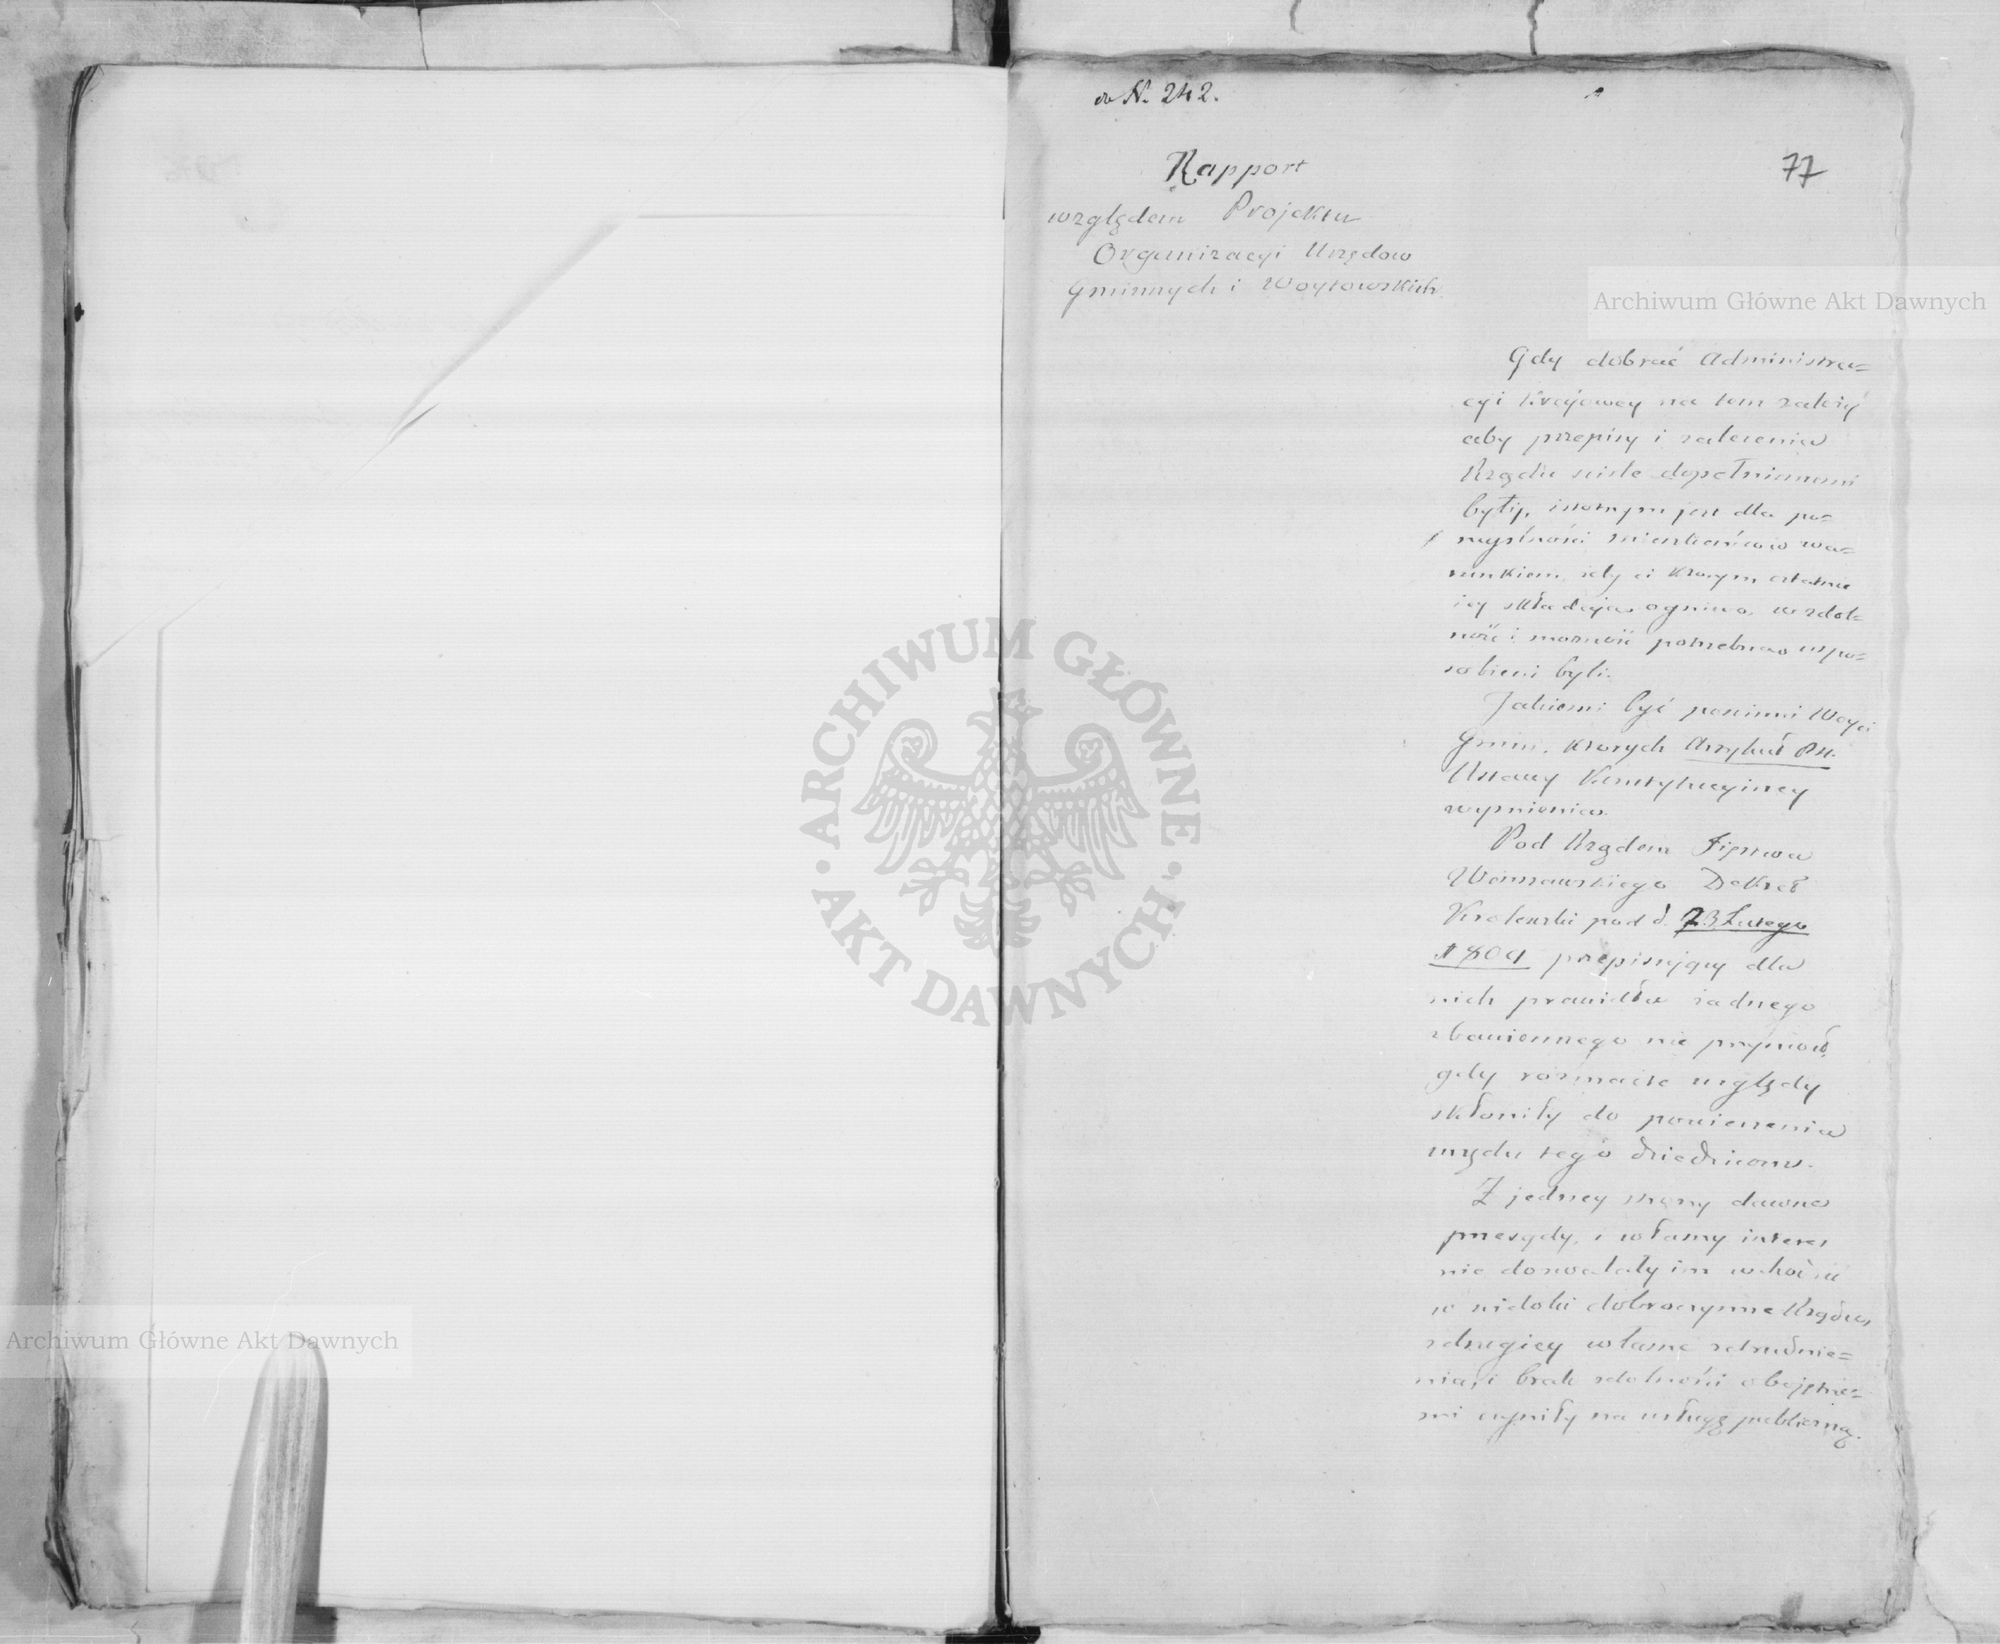 N. 242.
77
Rapport
względem Projektu
Organizacyi Urzędow
Gminnych i Woytowskich
Gdy dobroć Administra=
cyi Kraiowey na tem zależy
aby przepisy i zalecenia
Rządu ściśle dopełnianemi
były, istotnym jest dla po=
myślności mieszkańcow wa=
runkiem, żeby ci ktorym ostatnie
iey składaią ogniwo, w zdol=
ność i możność potrzebną uspo=
sobieni byli.
Jakiemi być powinni Woyci
Gmin, ktorych Artykuł
Ustawy Konstytucyiney
wymienia.
Pod Rządem Xięstwa
Warszawskiego Dekret
Krolewski pod d. 23 Lutego
1809 przepisuiący dla
nich prawidła żadnego
zbawiennego nie przyniosł,
gdy rozmaite względy
skłoniły do powierzenia
urzędu tego dziedzicom.
Z jedney strony dawne
przesądy, i własny interes
nie dozwalały im wchodzić
w widoki dobroczynne Rządu,
z drugiey własne zatrudnie=
nia, i brak zdolności oboiętne=
mi czyniły na usługę publiczną.
Archiwum Główne Akt Dawnych
Archiwum Główne Akt Dawnych
ARCHIWUM GŁÓWNE
AKT DAWNYCH